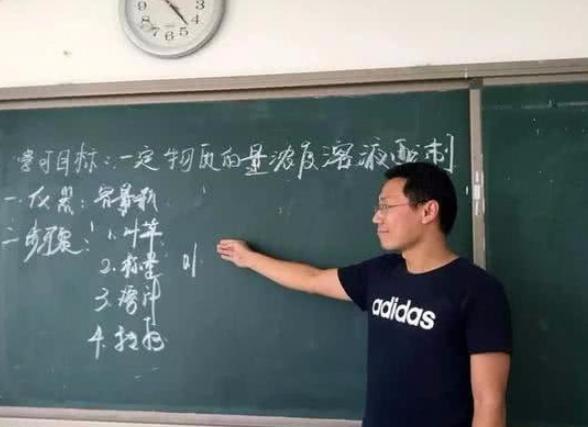 学习目标:一定物质的量浓度溶液配制
一.仪器:容量瓶
二.步骤:1.计算
2.称量
3.溶解
4.转移
adidas